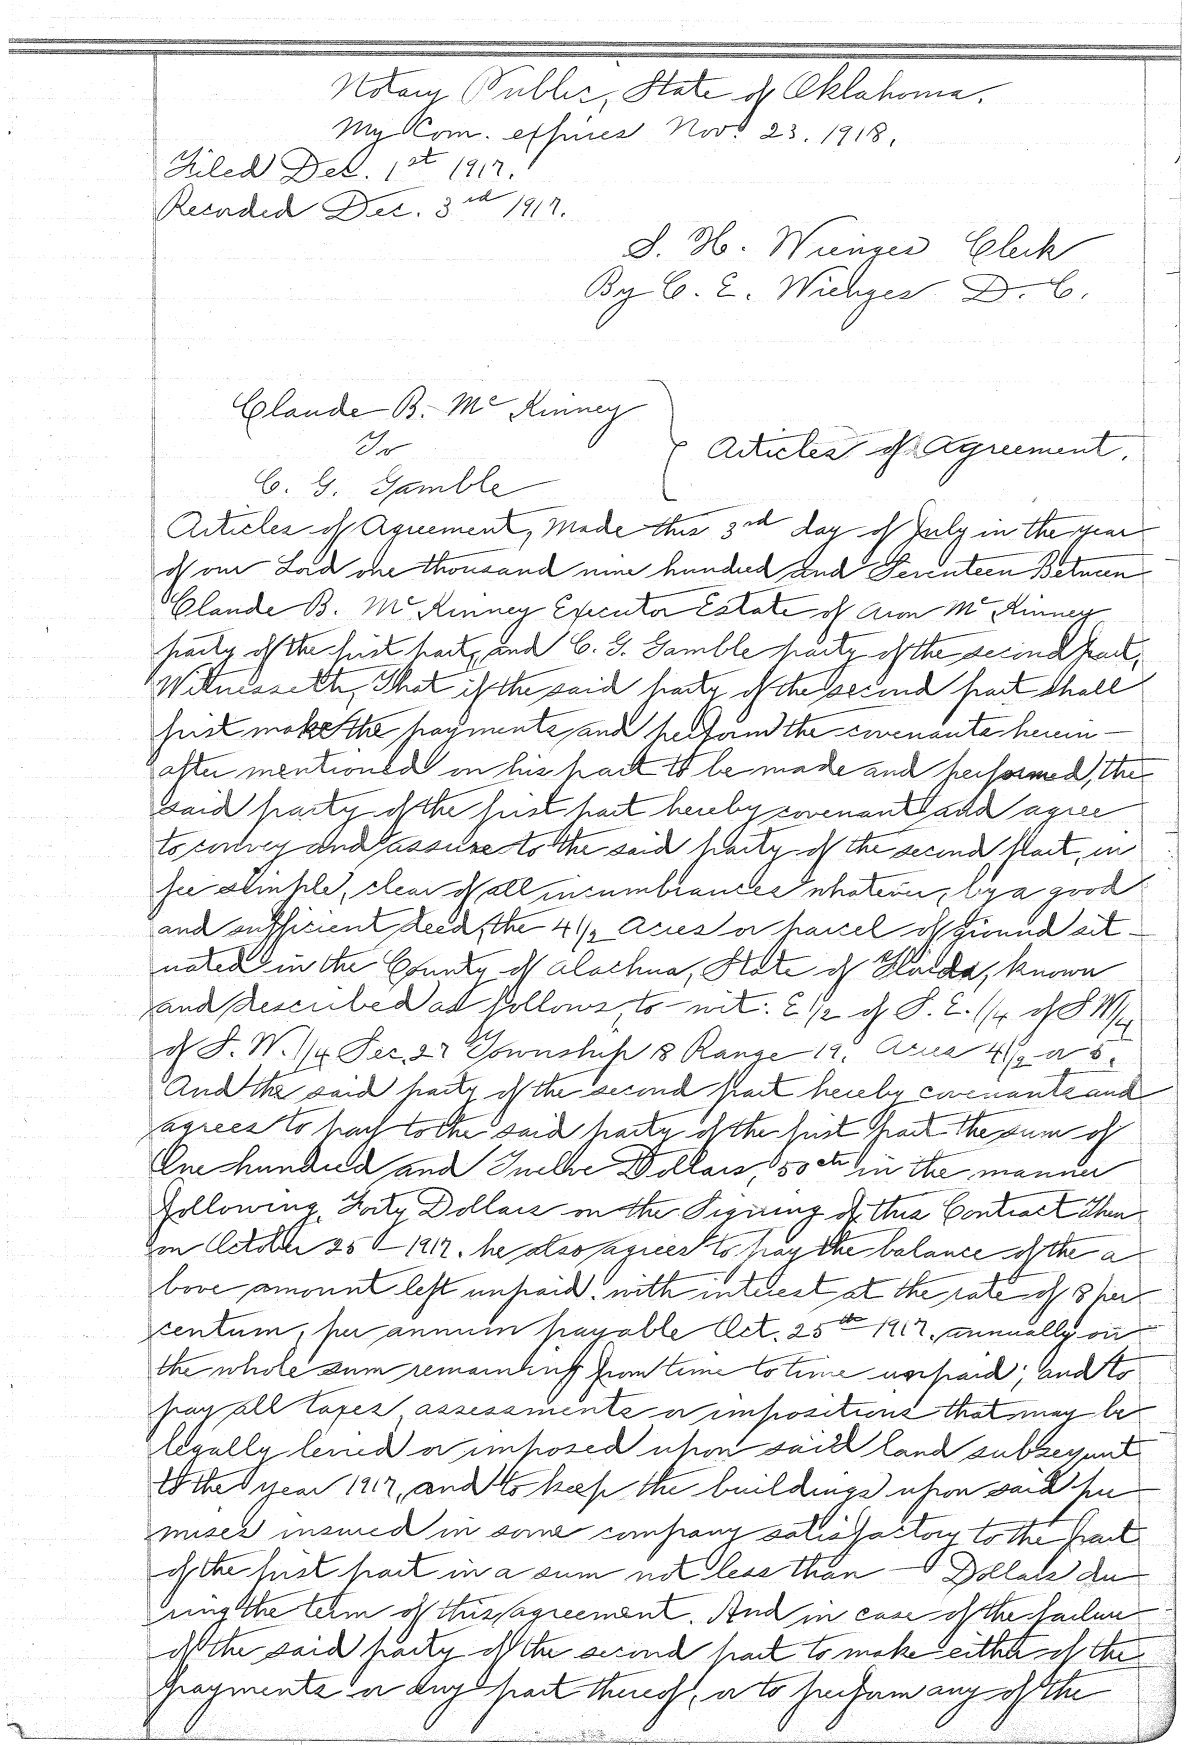 Notary Public, State of Oklahoma.
My Com. expires Nov. 23. 1918.
Filed Dec. 1st 1917.
Recorded Dec. 3rd 1917.
S. H. Wienges Clerk
By C. E. Wienges D. C.
Claude B. McKinney
To
Articles of Agreement.
C. G. Gamble
Articles of Agreement, Made this 3rd day of July in the year
of our Lord one thousand nine hundred and Seventeen Between
Claude B. McKinney Executor Estate of Aron McKinney
party of the first part, and C. G. Gamble party of the second part,
Witnesseth, That if the said party of the second part shall
first make the payments and perform the covenants herein-
after mentioned on his part to be made and performed, the
said party of the first part hereby covenant and agree
to convey and assure to the said party of the second part, in
fee simple, clear of all incumbrances whatever, by a good
and sufficient deed, the 4 1/2 Acres or parcel of ground sit-
uated in the County of Alachua, State of Florida, known
and described as follows, to-wit: E 1/2 of S. E. 1/4 of S W 1/4
of S. W. 1/4 Sec. 27 Township 8 Range 19. Acres 4 1/2 or 5.
And the said party of the second part hereby covenants and
agrees to pay to the said party of the first part the sum of
One hundred and Twelve Dollars, 50 cts in the manner
following, Forty Dollars on the Signing of this Contract Then
on October 25 - 1917. he also agrees to pay the balance of the a
bove amount left unpaid. with interest at the rate of 8 per
centum, per annum payable Oct. 25th 1917. annually on
the whole sum remaining from time to time unpaid; and to
pay all taxes, assessments or impositions that may be
legally levied or imposed upon said land subsequent
to the year 1917, and to keep the buildings upon said pre
mises insured in some company satisfactory to the part
of the first part in a sum not less than — Dollars du
ring the term of this agreement. And in case of the failure
of the said party of the second part to make either of the
payments or any part thereof, or to perform any of the